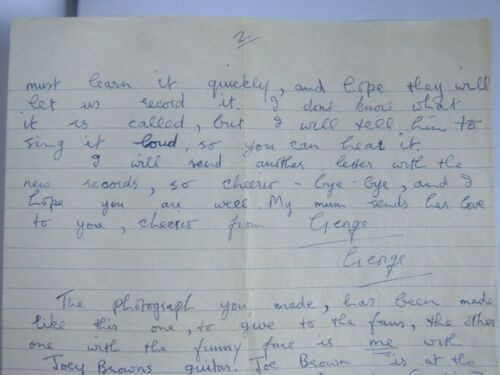 2
must learn it quickly, and hope they will
let us record it. I dont know what
it is called, but I will tell him to
sing it loud, so you can hear it.
I will send another letter with the
new records, so cheerio - bye-bye, and I
hope you are well. My mum sends her love
to you, cheerio from George
George
The photograph you made, has been made
like this one, to give to the fans, the other
one with the funny face is me with
Joey Browns guitar. Joe Brown is at the